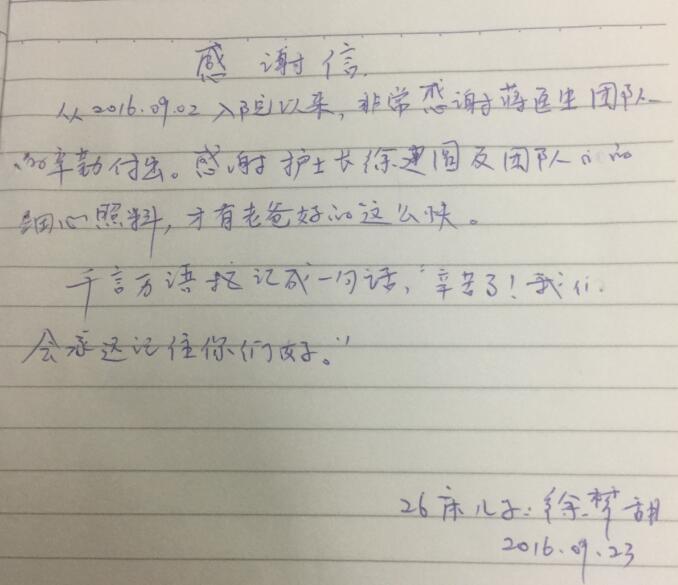 感谢信
从2016.09.02入院以来，非常感谢蒋医生团队
的辛勤付出。感谢护士长徐建圆及团队们的
细心照料，才有老爸好的这么快。
千言万语 记成一句话，“辛苦了！我们
会永远记住你们好。”
26床儿子：徐梦胡
2016.09.23